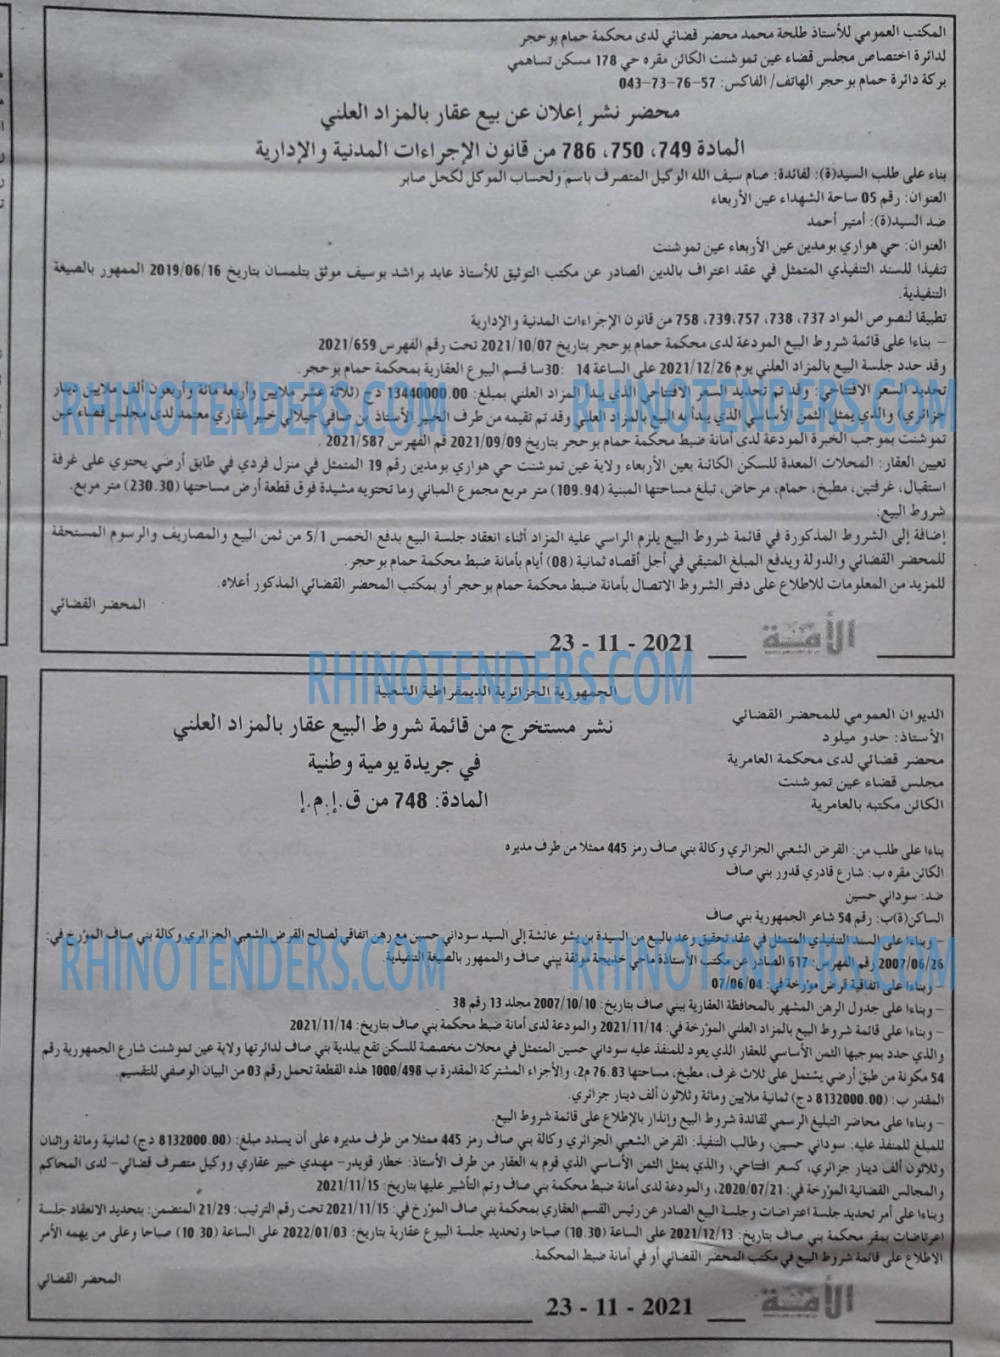 المكتب العمومي للأستاذ طلحة محمد محضر قضائي لدى محكمة حمام بوحجر
لدائرة اختصاص مجلس قضاء عين تموشنت الكائن مقره حي 178 مسكن تساهمي
بركة دائرة حمام بوحجر الهاتف/ الفاكس: 57-76-73-043
محضر نشر إعلان عن بيع عقار بالمزاد العلني
المادة 749، 750، 786 من قانون الإجراءات المدنية والإدارية
بناء على طلب السيد(ة): لفائدة: صام سيف الله الوكيل المتصرف باسم ولحساب الموكل لكحل صابر
العنوان: رقم 05 ساحة الشهداء عين الأربعاء
ضد السيد(ة): أمتير أحمد
العنوان: حي هواري بومدين عين الأربعاء عين تموشنت
تنفيذا للسند التنفيذي المتمثل في عقد اعتراف بالدين الصادر عن مكتب التوثيق للأستاذ عابد براشد بوسيف موثق بتلمسان بتاريخ 2019/06/16 الممهور بالصيغة
التنفيذية.
تطبيقا لنصوص المواد 737، 738، 739،757، 758 من قانون الإجراءات المدنية والإدارية
– بناءا على قائمة شروط البيع المودعة لدى محكمة حمام بوحجر بتاريخ 2021/10/07 تحت رقم الفهرس 2021/659
وقد حدد جلسة البيع بالمزاد العلني يوم 2021/12/26 على الساعة 14 :30سا قسم البيوع العقارية بمحكمة حمام بوحجر.
تحديد السعر الافتتاحي: وقد تم تحديد السعر الافتتاحي الذي يبدأ المزاد العلني بمبلغ: 13440000.00 دج (ثلاثة عشر ملايين وأربعة مائة وأربعون ألف ملايين دينار
جزائري) والذي يمثل الثمن الأساسي الذي يبدأ به البيع بالمزاد العلني وقد تم تقيمه من طرف الخبير الأستاذ بن صافي جيلالي خبير عقاري معتمد لدى مجلس قضاء عين
تموشنت بموجب الخبرة المودعة لدى أمانة ضبط محكمة حمام بوحجر بتاريخ 2021/09/09 قم الفهرس 2021/587 .
تعيين العقار: المحلات المعدة للسكن الكائنة بعين الأربعاء ولاية عين تموشنت حي هواري بومدين رقم 19 المتمثل في منزل فردي في طابق أرضي يحتوي على غرفة
استقبال، غرفتين، مطبخ، حمام، مرحاض، تبلغ مساحتها المبنية (109.94) متر مربع مجموع المباني وما تحتويه مشيدة فوق قطعة أرض مساحتها (230.30) متر مربع.
شروط البيع:
إضافة إلى الشروط المذكورة في قائمة شروط البيع يلزم الراسي عليه المزاد أثناء انعقاد جلسة البيع بدفع الخمس 5/1 من ثمن البيع والمصاريف والرسوم المستحقة
للمحضر القضائي والدولة ويدفع المبلغ المتبقي في أجل أقصاه ثمانية (08) أيام بأمانة ضبط محكمة حمام بوحجر.
للمزيد من المعلومات للاطلاع على دفتر الشروط الاتصال بأمانة ضبط محكمة حمام بوحجر أو بمكتب المحضر القضائي المذكور أعلاه.
المحضر القضائي
الأمة
23 - 11 - 2021
RHINOTENDERS.COM
RHINOTENDERS.COM
RHINOTENDERS.COM
الجمهورية الجزائرية الديمقراطية الشعبية
الديوان العمومي للمحضر القضائي
الأستاذ: حدو ميلود
محضر قضائي لدى محكمة العامرية
مجلس قضاء عين تموشنت
الكائن مكتبه بالعامرية
نشر مستخرج من قائمة شروط البيع عقار بالمزاد العلني
في جريدة يومية وطنية
المادة: 748 من ق.إ.م.إ
بناءا على طلب من: القرض الشعبي الجزائري وكالة بني صاف رمز 445 ممثلا من طرف مديره
الكائن مقره ب: شارع قادري قدور بني صاف
ضد: سوداني حسين
الساكن(ة)ب: رقم 54 شاعر الجمهورية بني صاف
– وبناءا على السند التنفيذي المتمثل في عقد تحقيق وعد بالبيع من السيدة بن يشو عائشة إلى السيد سوداني حسين مع رهن اتفاقي لصالح القرض الشعبي الجزائري وكالة بني صاف المؤرخ في:
2007/06/26 رقم الفهرس: 617 الصادر عن مكتب الأستاذة ماحي خديجة موثقة ببني صاف والممهور بالصيغة التنفيذية.
– وبناءا على اتفاقية قرض مؤرخة في: 07/06/04
– وبناءا على جدول الرهن المشهر بالمحافظة العقارية ببني صاف بتاريخ: 2007/10/10 مجلد 13 رقم 38
– وبناءا على قائمة شروط البيع بالمزاد العلني المؤرخة في: 2021/11/14 والمودعة لدى أمانة ضبط محكمة بني صاف بتاريخ: 2021/11/14
والذي حدد بموجبها الثمن الأساسي للعقار الذي يعود للمنفذ عليه سوداني حسين المتمثل في محلات مخصصة للسكن تقع ببلدية بني صاف لدائرتها ولاية عين تموشنت شارع الجمهورية رقم
54 مكونة من طبق أرضي يشتمل على ثلاث غرف، مطبخ، مساحتها 76.83 م2، والأجزاء المشتركة المقدرة ب 1000/498 هذه القطعة تحمل رقم 03 من البيان الوصفي للتقسيم.
المقدر ب: (8132000.00 دج) ثمانية ملايين ومائة وثلاثون ألف دينار جزائري.
– وبناءا على محاضر التبليغ الرسمي لقائدة شروط البيع وإنذار بالإطلاع على قائمة شروط البيع.
للمبلغ للمنفذ عليه: سوداني حسين، وطالب التنفيذ: القرض الشعبي الجزائري وكالة بني صاف رمز 445 ممثلا من طرف مديره على أن يسدد مبلغ: (8132000.00 دج) ثمانية ومائة وإثنان
وثلاثون ألف دينار جزائري، كسعر افتتاحي، والذي يمثل الثمن الأساسي الذي قوم به العقار من طرف الأستاذ: خطار قويدر– مهندي خبير عقاري ووكيل متصرف قضائي– لدى المحاكم
والمجالس القضائية المؤرخة في: 2020/07/21، والمودعة لدى أمانة ضبط محكمة بني صاف وتم التأشير عليها بتاريخ: 2021/11/15
وبناءا على أمر تحديد جلسة اعتراضات وجلسة البيع الصادر عن رئيس القسم العقاري بمحكمة بني صاف المؤرخ في: 2021/11/15 تحت رقم الترتيب: 21/29 المتضمن: بتحديد الانعقاد جلسة
اعرتاضات بمقر محكمة بني صاف بتاريخ: 2021/12/13 على الساعة (10.30) صباحا وتحديد جلسة البيوع عقارية بتاريخ: 2022/01/03 على الساعة (10.30) صباحا وعلى من يهمه الأمر
الاطلاع على قائمة شروط البيع في مكتب المحضر القضائي أو في أمانة ضبط المحكمة.
المحضر القضائي
RHINOTENDERS.COM
RHINOTENDERS.COM
الأمة
23 - 11 - 2021